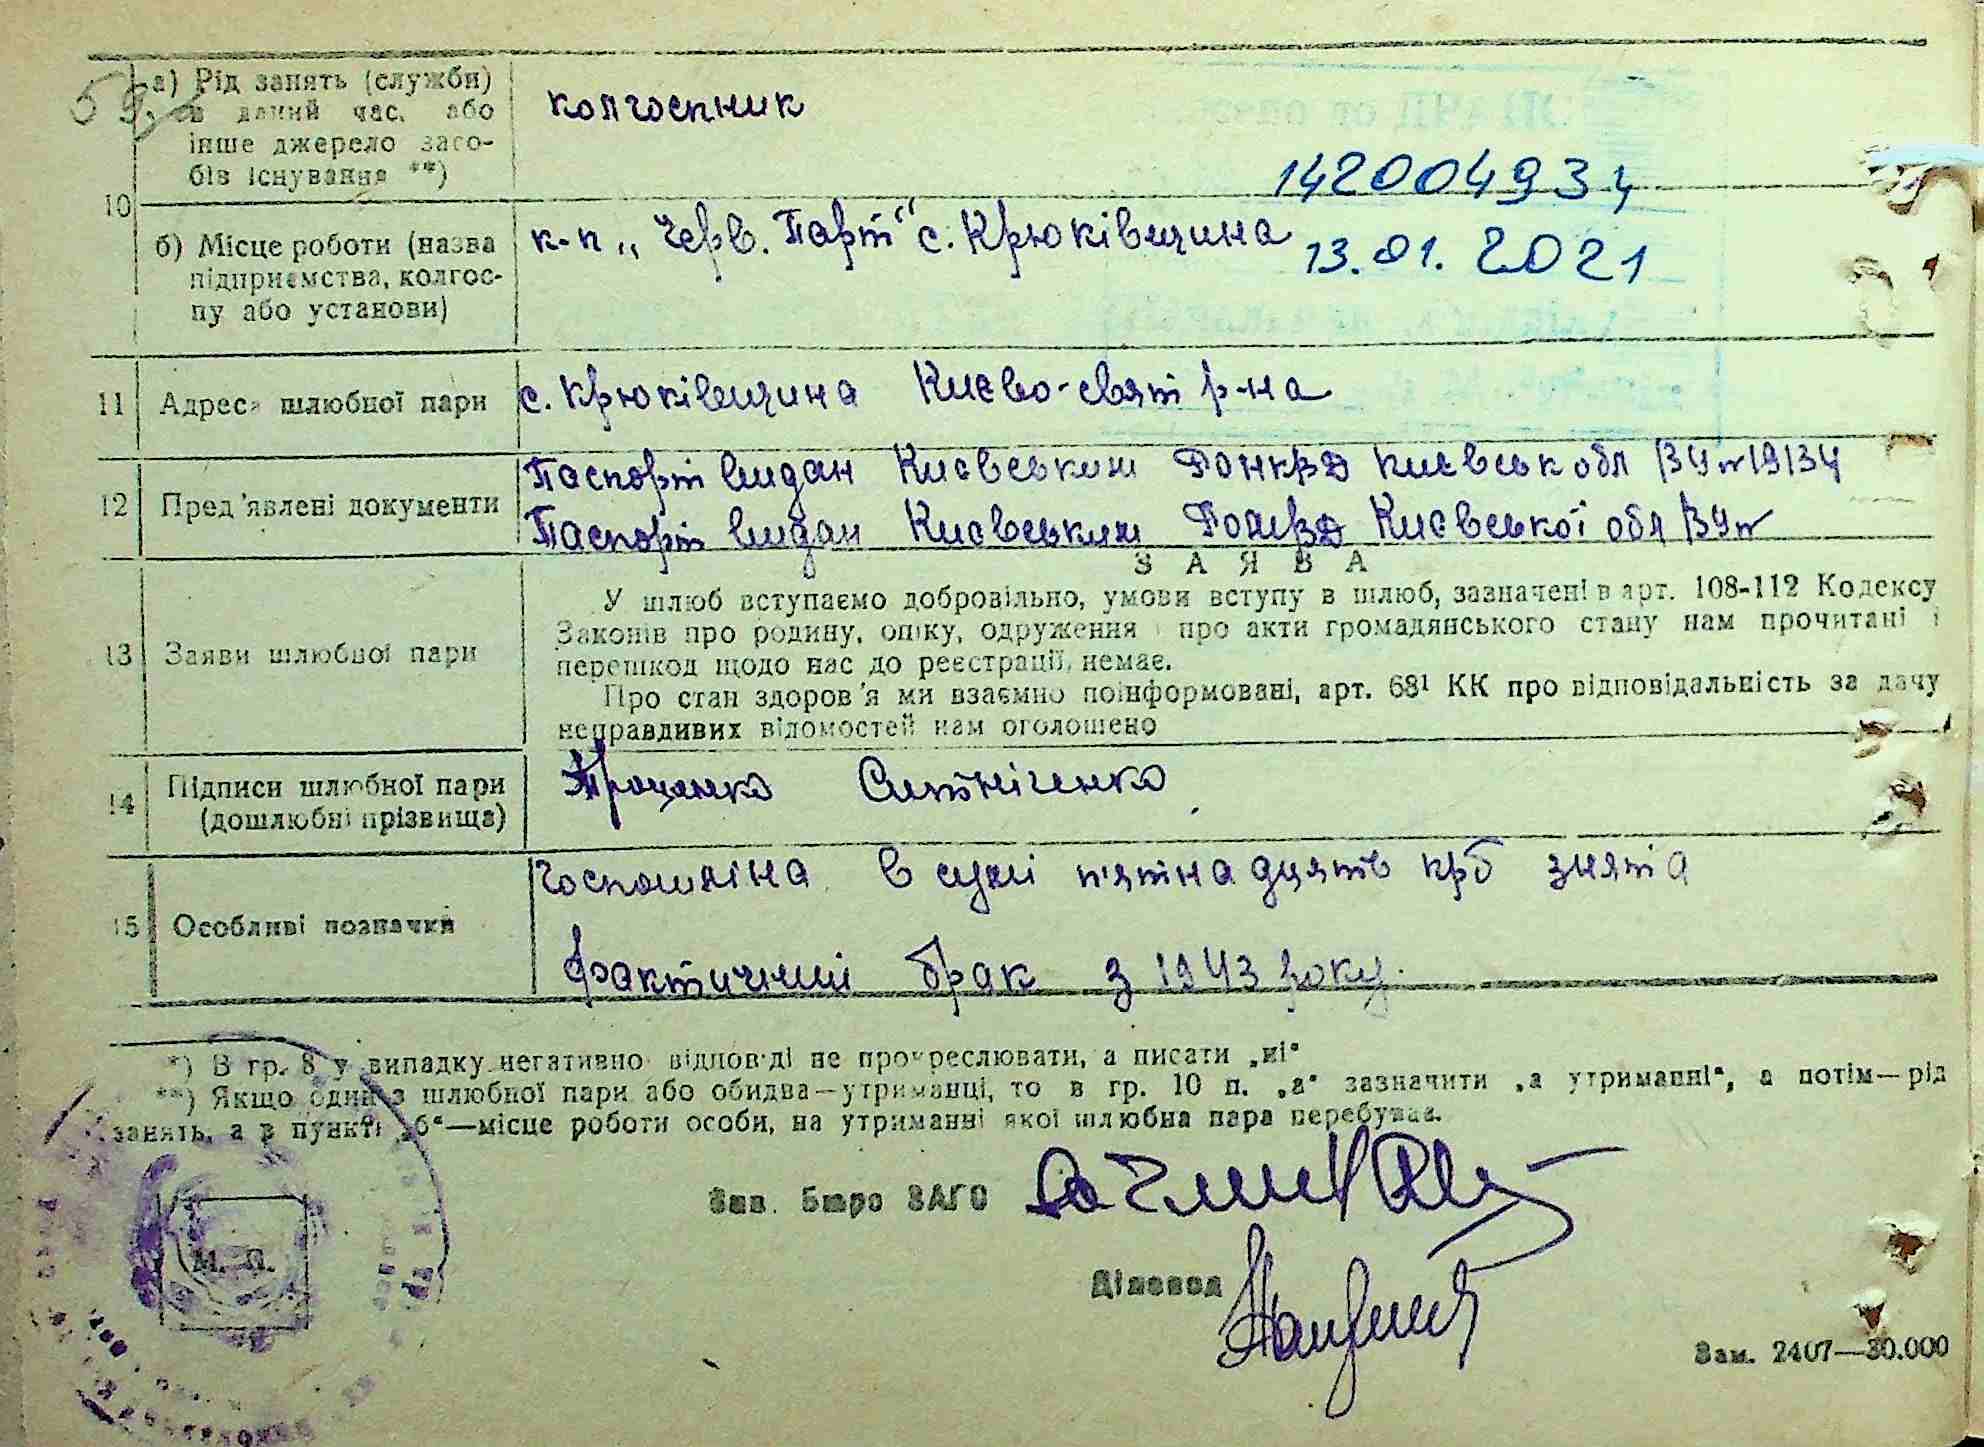 59
10
а) Рід занять (служби)
в даний час, або
інше джерело засо-
бів існування **)
колгоспник
142004934
б) Місце роботи (назва
підприємства, колгос-
пу або установи)
к-п „Черв. Парт“ с. Крюківщина
13.01.2021
11 Адреса шлюбної пари
с. Крюківщина Києво-свят р-на
12 Пред'явлені документи
Паспорт видан Києвським Києвськ обл 19134
Паспорт видан Києвським Києвської обл
З А Я В А
13 Заяви шлюбної пари
У шлюб вступаємо добровільно, умови вступу в шлюб, зазначені в арт. 108-112 Кодексу
Законів про родину, опіку, одруження і про акти громадянського стану нам прочитані і
перешкод щодо нас до реєстрації, немає.
Про стан здоров'я ми взаємно поінформовані, арт. 68¹ КК про відповідальність за дачу
неправдивих відомостей нам оголошено
14 Підписи шлюбної пари
(дошлюбні прізвища)
Проценко
15 Особливі позначки
в сумі п'ятнадцять крб знята
фактичний брак з 1943 року.
*) В гр. 8 у випадку негативно відповіді не прокреслювати, а писати „ні“
**) Якщо один з шлюбної пари або обидва—утриманці, то в гр. 10 п. „а“ зазначити „а утриманні“, а потім—рід
занять, а в пункті „б“—місце роботи особи, на утриманні якої шлюбна пара перебуває.
Зав. Бюро ЗАГС
М. П.
Діловод
Зам. 2407—30.000